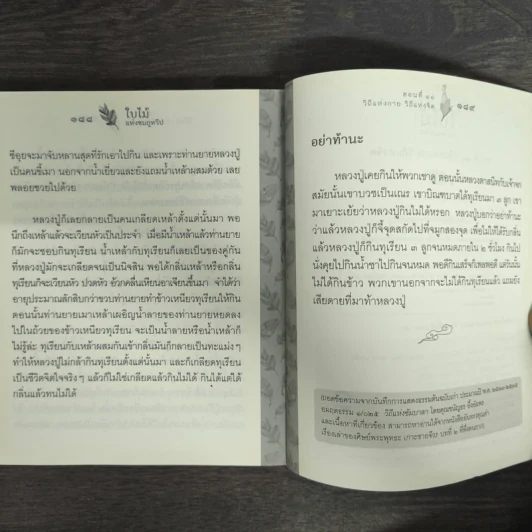 ๑๘๘
ใบไม้
แห่งชมภูทวีป
ซือุยจะมาจับหลานสุดที่รักเอาไปกิน และเพราะท่านยายหลวงปู่
เป็นคนขี้เมา นอกจากน้ำเยี่ยวและยังแถมน้ำเหล้าผสมด้วย เลย
พลอยซวยไปด้วย
หลวงปู่ก็เลยกลายเป็นคนเกลียดเหล้าตั้งแต่นั้นมา พอ
นึกถึงเหล้าแล้วจะเวียนหัวเป็นประจำ เมื่อมีน้ำเหล้าแล้วท่านยาย
ก็มักจะชอบกินทุเรียน น้ำเหล้ากับทุเรียนก็เลยเป็นของคู่กัน
ที่หลวงปู่มักจะเกลียดจนเป็นนิจสิน พอได้กลิ่นเหล้าหรือกลิ่น
ทุเรียนก็จะเวียนหัว ปวดหัว อ้วกคลื่นเหียนอาเจียนขึ้นมา จำได้ว่า
อายุประมาณสักสิบกว่าขวบท่านยายทำข้าวเหนียวทุเรียนให้กิน
ตอนนั้นท่านยายเมาเหล้าเผอิญน้ำลายของท่านยายหยดลง
ไปในถ้วยของข้าวเหนียวทุเรียน จะเป็นน้ำลายหรือน้ำเหล้าก็
ไม่รู้ล่ะ ทุเรียนกับเหล้าผสมกันเข้ากลิ่นมันก็กลายเป็นทะแม่ง ๆ
ทำให้หลวงปู่ไม่กล้ากินทุเรียนตั้งแต่นั้นมา และก็เกลียดทุเรียน
เป็นชีวิตจิตใจจริง ๆ แล้วก็ไม่ใช่เกลียดแล้วกินไม่ได้ กินได้แต่ได้
กลิ่นแล้วทนไม่ได้
ตอนที่ ๑๑
วิถีแห่งกาย วิถีแห่งจิต
๑๘๙
อย่าท้านะ
หลวงปู่เคยกินให้พวกเขาดู ตอนนั้นหลวงตาสนิทวันเจ้าจะ
สมัยนั้นเขาบวชเป็นเณร เขาบิณฑบาตได้ทุเรียนมา ๓ ลูก เขา
มาเยาะเย้ยว่าหลวงปู่กินไม่ได้หรอก หลวงปู่บอกว่าอย่าท้านะ
ว่าแล้วหลวงปู่ก็จี้จุดสกัดไปที่จมูกสองจุด เพื่อไม่ให้ได้รับกลิ่น
แล้วหลวงปู่ก็กินทุเรียน ๓ ลูกจนหมดภายใน ๒ ชั่วโมง กินไป
นั่งคุยไปกินน้ำชาไปจนหมด พอดีกินเสร็จก็เพลพอดี แต่วันนั้น
ไม่ได้กินข้าว พวกเขานอกจากจะไม่ได้กินทุเรียนแล้ว แถมยัง
เสียดายที่มาท้าหลวงปู่
(ถอดข้อความจากบันทึกการแสดงธรรมต้นฉบับเก่า ประมาณปี พ.ศ.
อมฤตธรรม ๑/๐๒๕ วิถีแห่งชัมบาลา โดยคุณชนัญธร
และเนื้อหาที่เกี่ยวข้อง สามารถหาอ่านได้จากหนังสือ
เรื่องเล่าของศิษย์พระพุทธะ